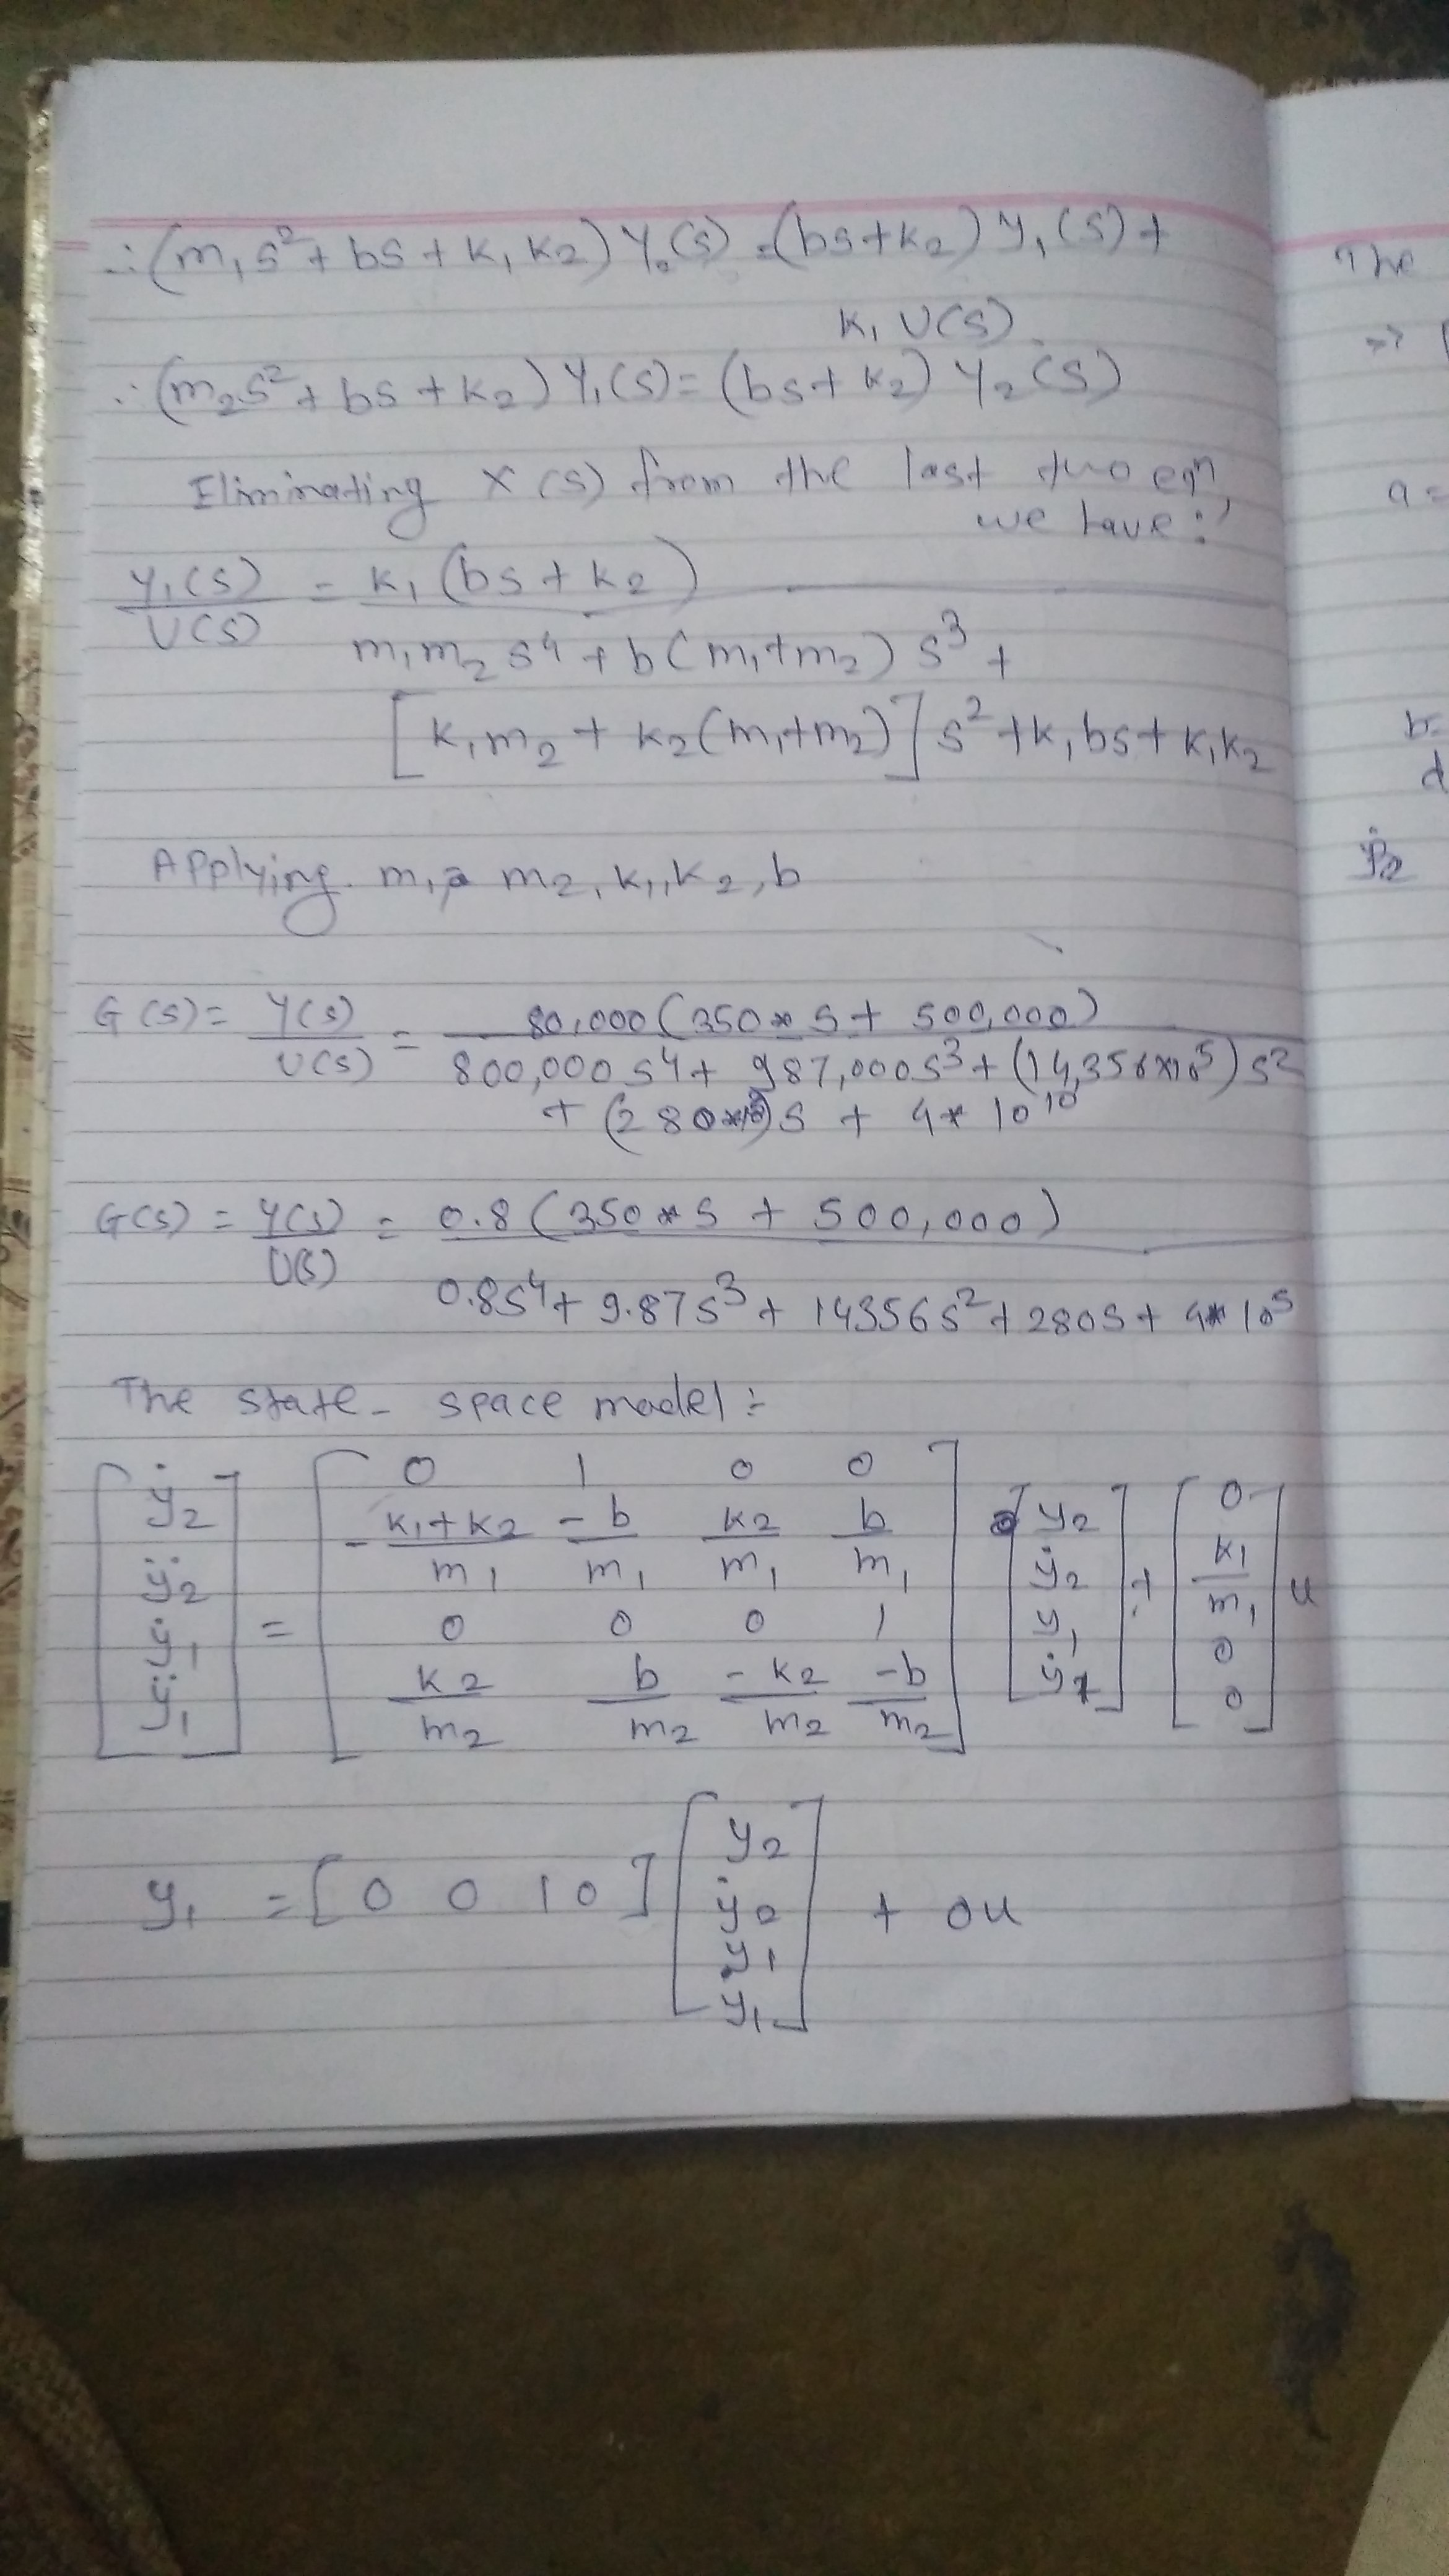 ∴ (m₁s² + bs + k₁ k₂) Y₂(s) = (bs + k₂) y₁(s) +
k₁ U(s).
∴ (m₂s² + bs + k₂) Y₁(s) = (bs + k₂) Y₂(s)
Eliminating X(s) from the last two eqn,
we have :
Y₁(s) / U(s) = k₁ (bs + k₂) /
m₁m₂ s⁴ + b(m₁+m₂) s³ +
[k₁m₂ + k₂(m₁+m₂)] s² + k₁bs + k₁k₂
Applying m₁, m₂, k₁, k₂, b
G(s) = Y(s) / U(s) = 80,000 (350*s + 500,000) /
800,000 s⁴ + 987,000 s³ + (14,356×10⁵) s²
+ (280*10⁵)s + 4*10¹⁰
G(s) = Y(s) / U(s) = 0.8 (350*s + 500,000) /
0.8s⁴ + 9.87s³ + 14356s² + 280s + 4*10⁵
The state - space model :-
[ẏ₂ ÿ₂ ẏ₁ ÿ₁] =
[0 1 0 0
-(k₁+k₂)/m₁ -b/m₁ k₂/m₁ b/m₁
0 0 0 1
k₂/m₂ b/m₂ -k₂/m₂ -b/m₂]
[y₂ ẏ₂ y₁ ẏ₁] + [0 k₁/m₁ 0 0] u
y₁ = [0 0 1 0] [y₂ ẏ₂ y₁ ẏ₁] + 0u
The
⇒
a =
b=
d